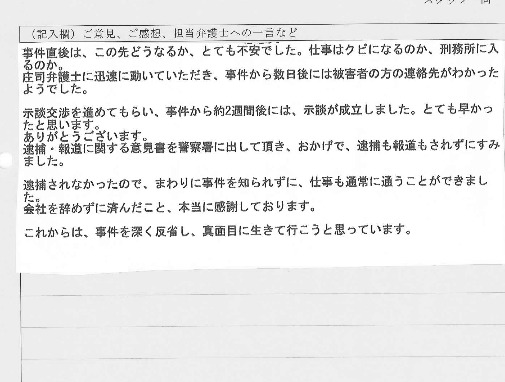 （記入欄）ご意見、ご感想、担当弁護士への一言など
事件直後は、この先どうなるか、とても不安でした。仕事はクビになるのか、刑務所に入
るのか。
庄司弁護士に迅速に動いていただき、事件から数日後には被害者の方の連絡先がわかった
ようでした。
示談交渉を進めてもらい、事件から約2週間後には、示談が成立しました。とても早かっ
たと思います。
ありがとうございます。
逮捕・報道に関する意見書を警察署に出して頂き、おかげで、逮捕も報道もされずにすみ
ました。
逮捕されなかったので、まわりに事件を知られずに、仕事も通常に通うことができまし
た。
会社を辞めずに済んだこと、本当に感謝しております。
これからは、事件を深く反省し、真面目に生きて行こうと思っています。